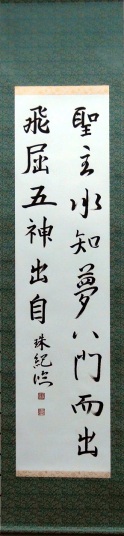 聖主水知夢八門而出
飛屈五神出自
珠紀臨